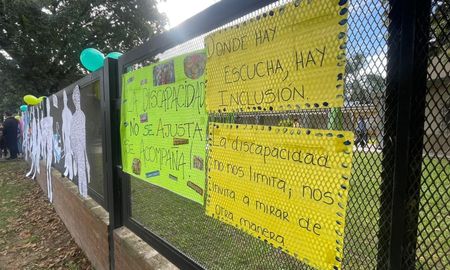 LA DISCAPACIDAD
NO SE AJUSTA
SE ACOMPAÑA
DONDE HAY
ESCUCHA, HAY
INCLUSIÓN
La discapacidad
no nos limita; nos
invita a mirar de
otra manera